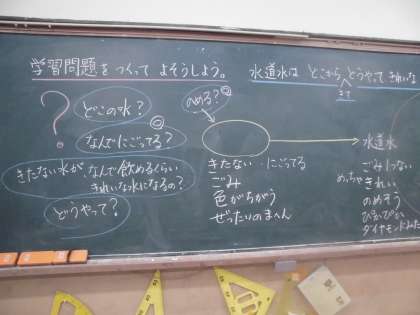 学習問題をつくって よそうしよう。
水道水は どこから どうやって きれいな
ます
?
どこの水?
なんでにごってる?
きたない水が なんで飲めるくらい
きれいな水になるの?
どうやって?
のめる?
きたない・にごってる
ごみ
色がちがう
ぜったいのまへん
水道水
ごみ1つない
めっちゃきれい
のめそう
ぴかぴか
ダイヤモンドみた